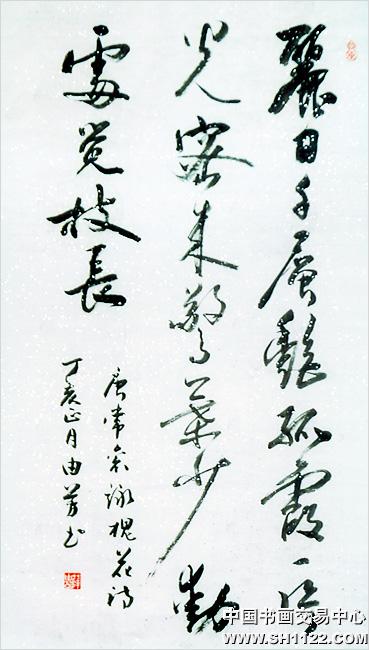 麗日千層艷孤霞一片
光密来驚葉少動
處覺枝長
唐常衮詠槐花诗
丁亥正月由芳书
中国书画交易中心
WWW.SH1122.COM